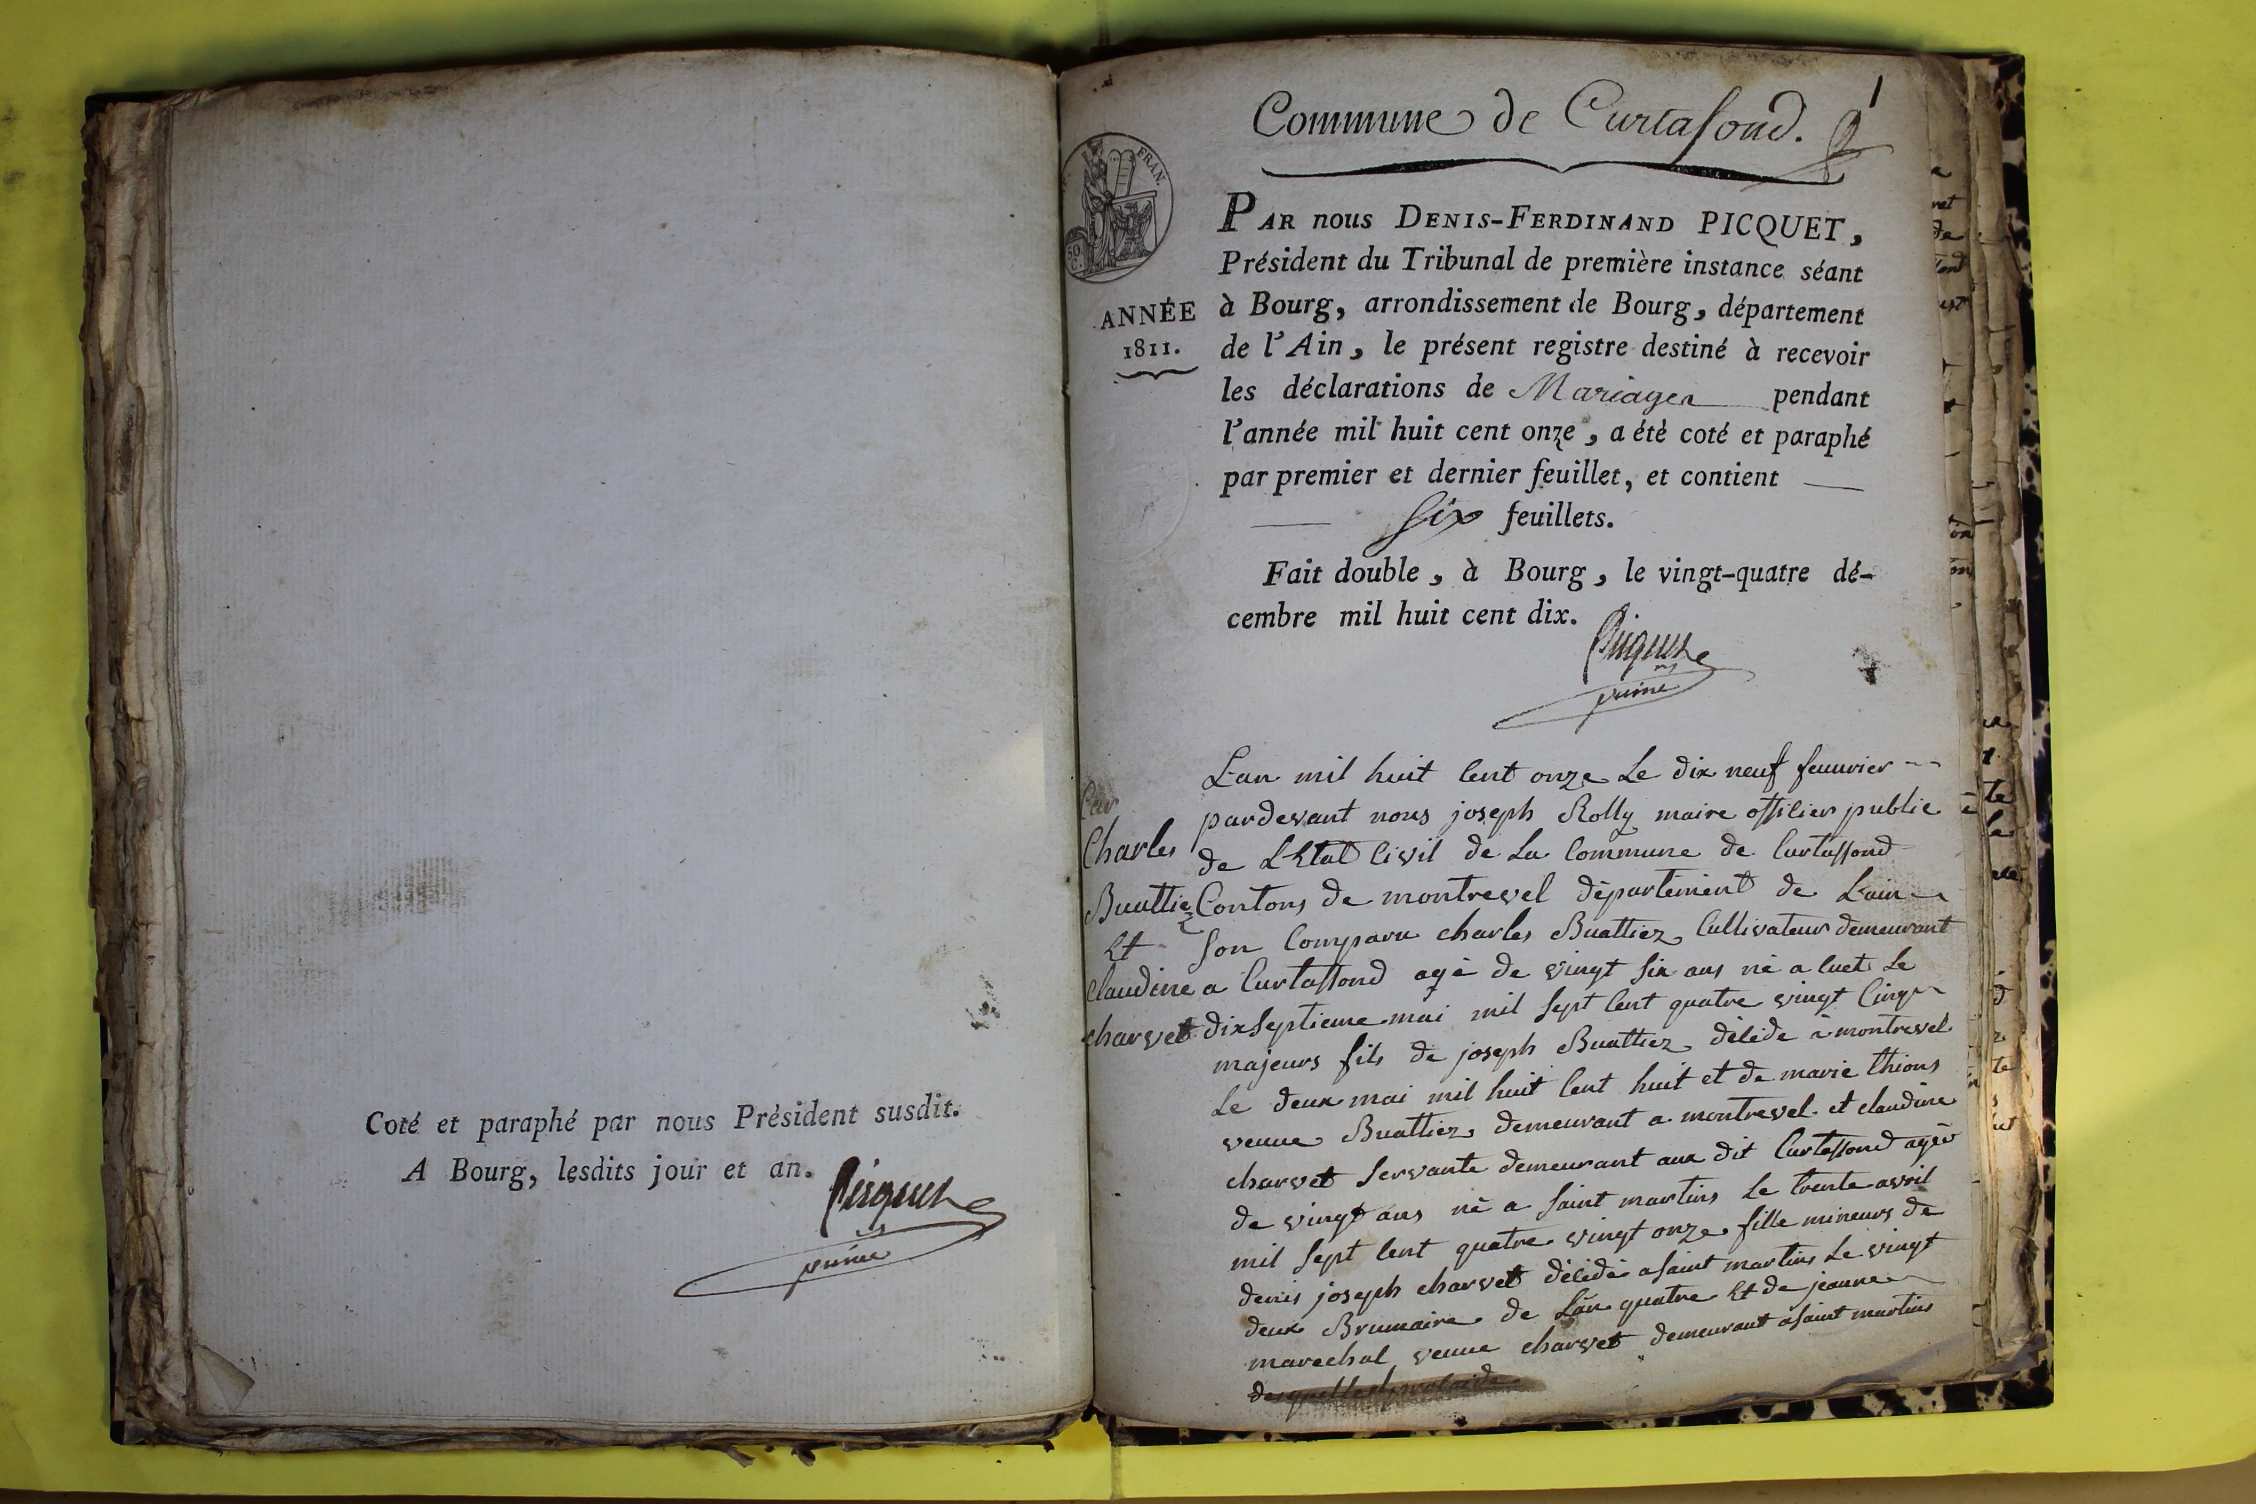 Coté et paraphé par nous Président susdit.
A Bourg, lesdits jour et an.
Picquet
prime
1
Commune de Curtafond.
FRAN.
50
C.
ANNÉE
1811.
PAR nous DENIS-FERDINAND PICQUET,
Président du Tribunal de première instance séant
à Bourg, arrondissement de Bourg, département
de l'Ain, le présent registre destiné à recevoir
les déclarations de Mariages pendant
l'année mil huit cent onze, a été coté et paraphé
par premier et dernier feuillet, et contient
Six feuillets.
Fait double, à Bourg, le vingt-quatre dé-
cembre mil huit cent dix.
Picquet
prime
Car
Charles
Buattiez
Et
claudine
charvet
Lan mil huit Cent onze Le dix neuf feuvrier
pardevant nous joseph Rolly maire offilier public
de LEtat Civil de La Commune de Curtaffond
Contons de montrevel département de Lain
Son Comparu charles Buattiez Cultivateur demeurant
a Curtaffond agé de vingt Six ans né a Cuet Le
dixSeptieme mai mil Sept Cent quatre vingt Cinq
majeurs fils de joseph Buattiez décédé à montrevel
Le deux mai mil huit Cent huit et de marie thions
veuue Buattiez demeurant a montrevel et claudine
charvet Servante demeurant aux dit Curtaffond agée
de vingt ans né a Saint martins Le trente avril
mil Sept Cent quatre vingt onze fille mineurs de
denis joseph charvet décédé a Saint martins Le vingt
deux Brumaire de Lan quatre Et de jeanne
marechal veuue charvet demeurant a Saint martins